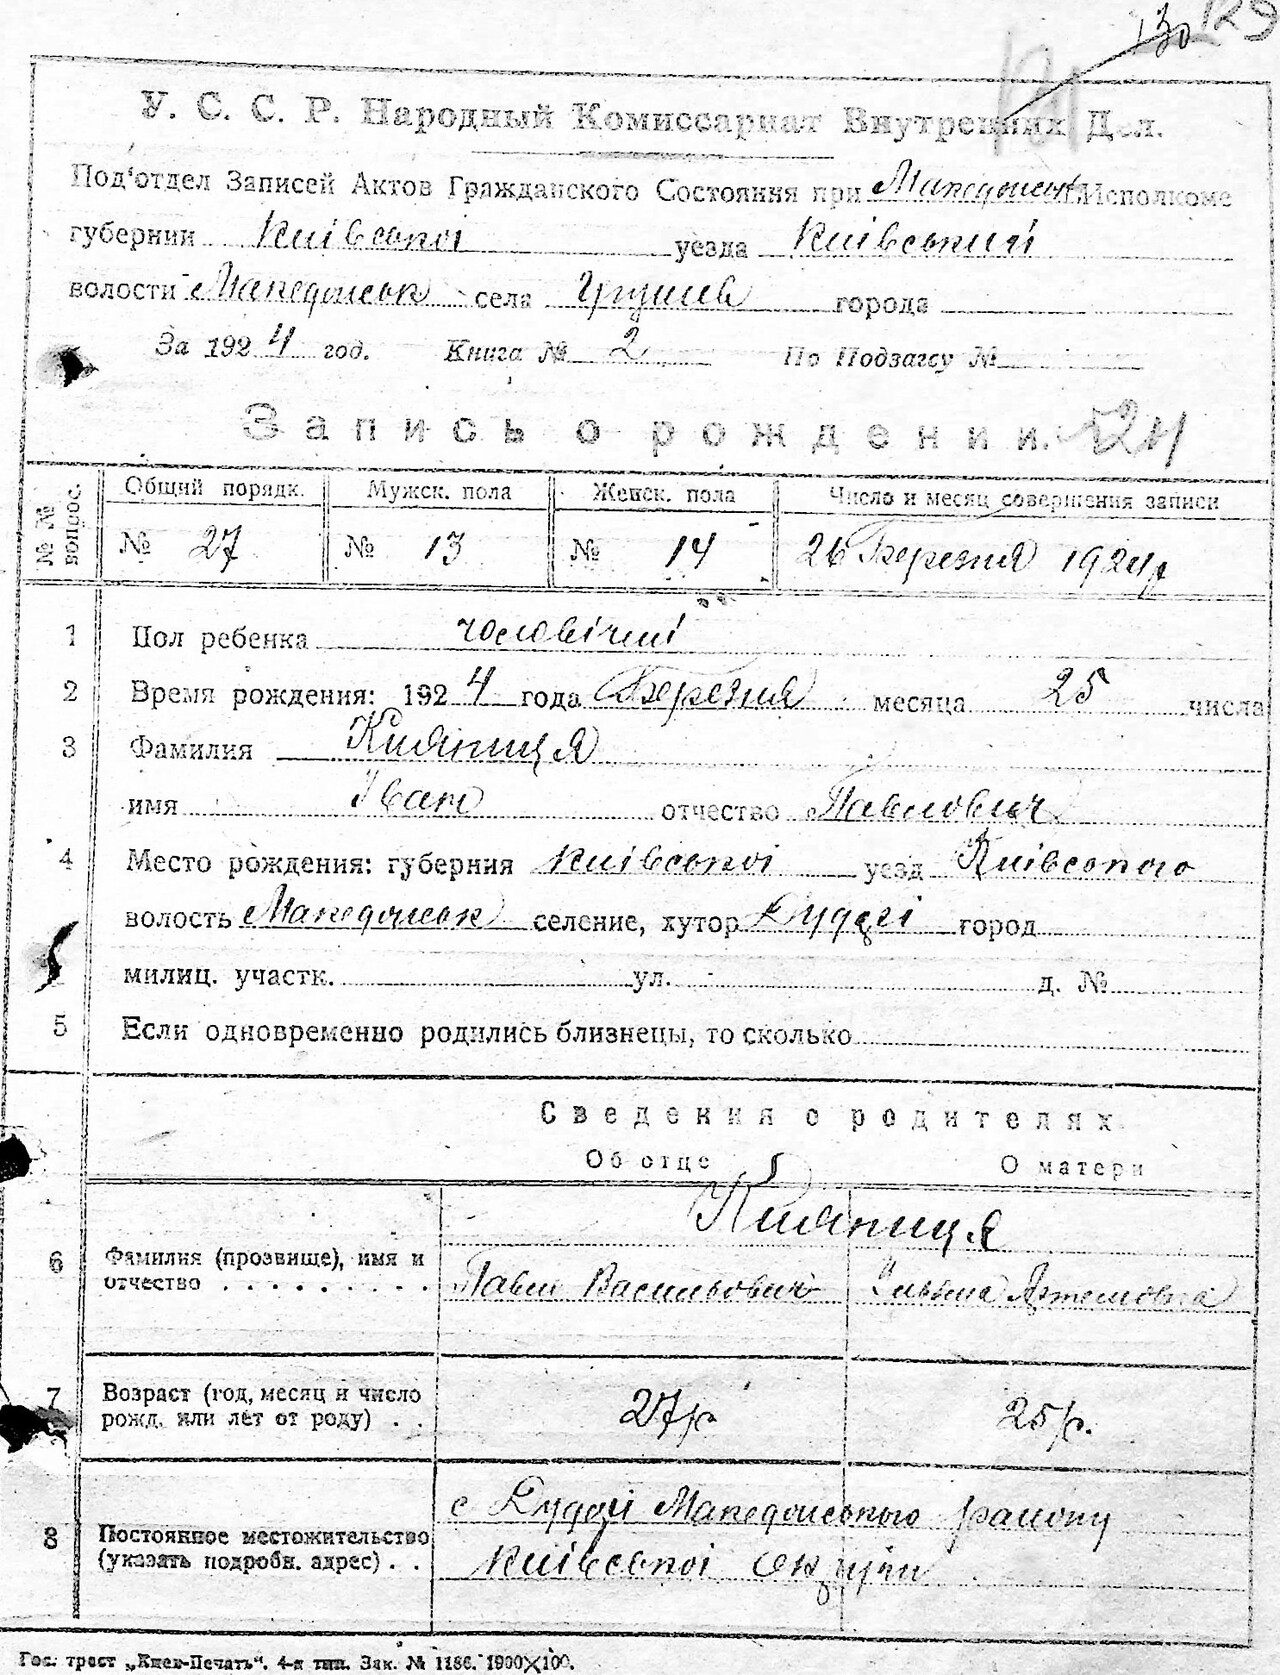 130 129
131
У. С. С. Р. Народный Комиссариат Внутренних Дел.
Под'отдел Записей Актов Гражданского Состояния при Македонськ Исполкоме
губернии Київської уезда Київський
волости Македонськ села города
За 1924 год. Книга № 2 По Подзагсу №
Запись о рождении. 24
№ № вопрос. Общий порядк. Мужск. пола Женск. пола Число и месяц совершения записи
№ 27 № 13 № 14 26 Березня 1924 р
1 Пол ребенка чоловічий
2 Время рождения: 1924 года Березня месяца 25 числа
3 Фамилия Кияниця
имя Іван отчество Павлович
4 Место рождения: губерния Київської уезд Київського
волость Македонськ селение, хутор Дударі город
милиц. участк. ул. д. №
5 Если одновременно родились близнецы, то сколько
Сведения о родителях
Об отце О матери
Кияниця
6 Фамилия (прозвище), имя и
отчество . . . . . . . . . Павло Васильович Уляна Артемовна
7 Возраст (год, месяц и число
рожд. или лет от роду) . . 27 р 25 р.
с Дударі Македонського району
8 Постоянное местожительство
(указать подробн. адрес) . . Київської округи
Гос. трест „Киев-Печать“. 4-я тип. Зак. № 1186. 1900×100.